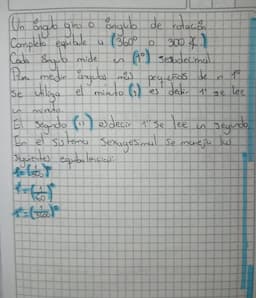 Un ángulo giro o ángulo de rotación
Completo equivale a (360° o 300
Cada ángulo mide un (1°) sexadecimal
Para medir ángulos más pequeños de un 1°
se utiliza el minuto (') es decir 1' se lee
un minuto.
El segundo ('') es decir 1'' se lee un segundo
En el sistema sexagesimal se maneja las
siguientes equivalencias: